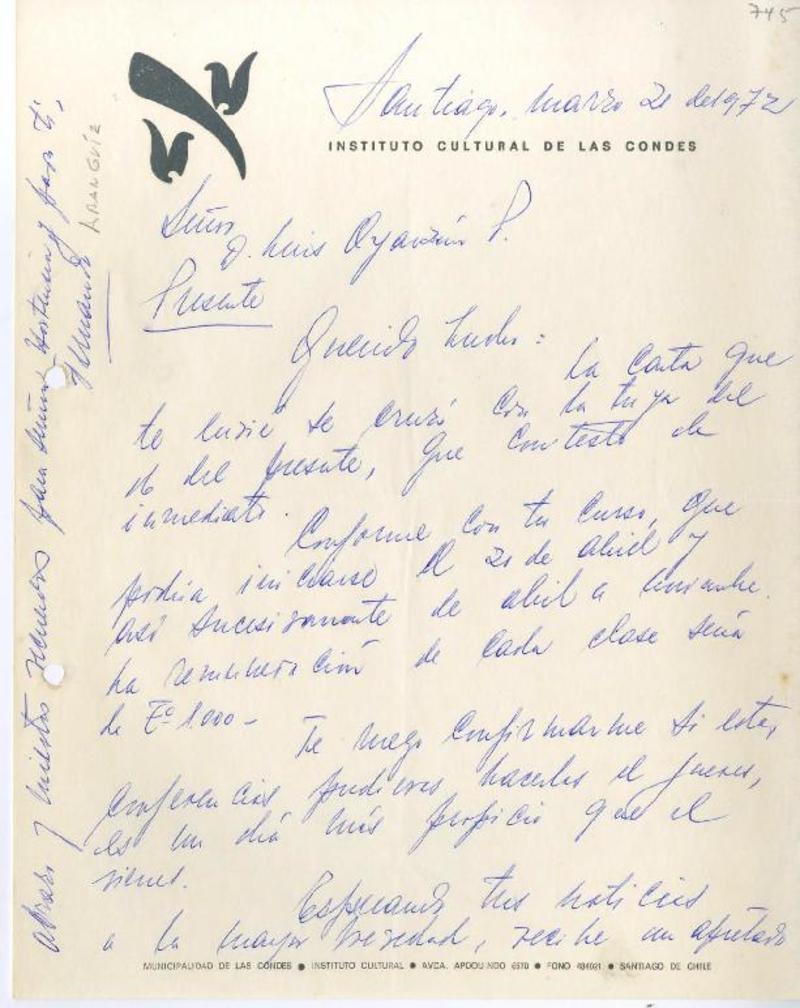 745
Santiago, marzo 21 de 1972
INSTITUTO CULTURAL DE LAS CONDES
Señor
D. Luis Oyarzún P.
Presente
Querido Lucho:
La carta que
te envié se cruzó con la tuya del
16 del presente, que contesto de
inmediato.
Conforme con tu curso, que
podría iniciarse el 21 de abril y
así sucesivamente de abril a noviembre.
La remuneración de cada clase sería
de Eº 1.000-
Te ruego confirmarme si estas
conferencias pudieras hacerlas el jueves,
es un día más propicio que el
viernes.
Esperando tus noticias
a la mayor brevedad, recibe un apretado
abrazo y nuestros recuerdos para Señora Hortensia y para ti,
Fernando
ARANGUIZ
MUNICIPALIDAD DE LAS CONDES ● INSTITUTO CULTURAL ● AVDA. APOQUINDO 6570 ● FONO 484021 ● SANTIAGO DE CHILE